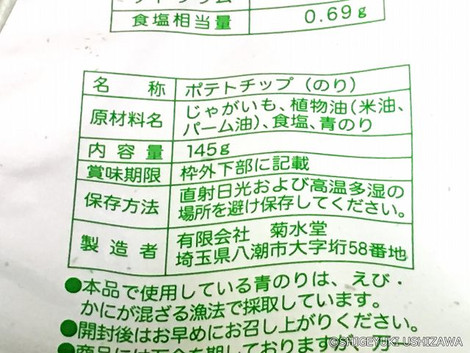 食塩相当量 0.69g
名称 ポテトチップ(のり)
原材料名 じゃがいも、植物油(米油、
パーム油)、食塩、青のり
内容量 145g
賞味期限 枠外下部に記載
保存方法 直射日光および高温多湿の
場所を避け保存してください。
製造者 有限会社 菊水堂
埼玉県八潮市大字垳58番地
●本品で使用している青のりは、えび・
かにが混ざる漁法で採取しています。
●開封後はお早めにお召し上がりください。
©SHIGEYUKI USHIZAWA